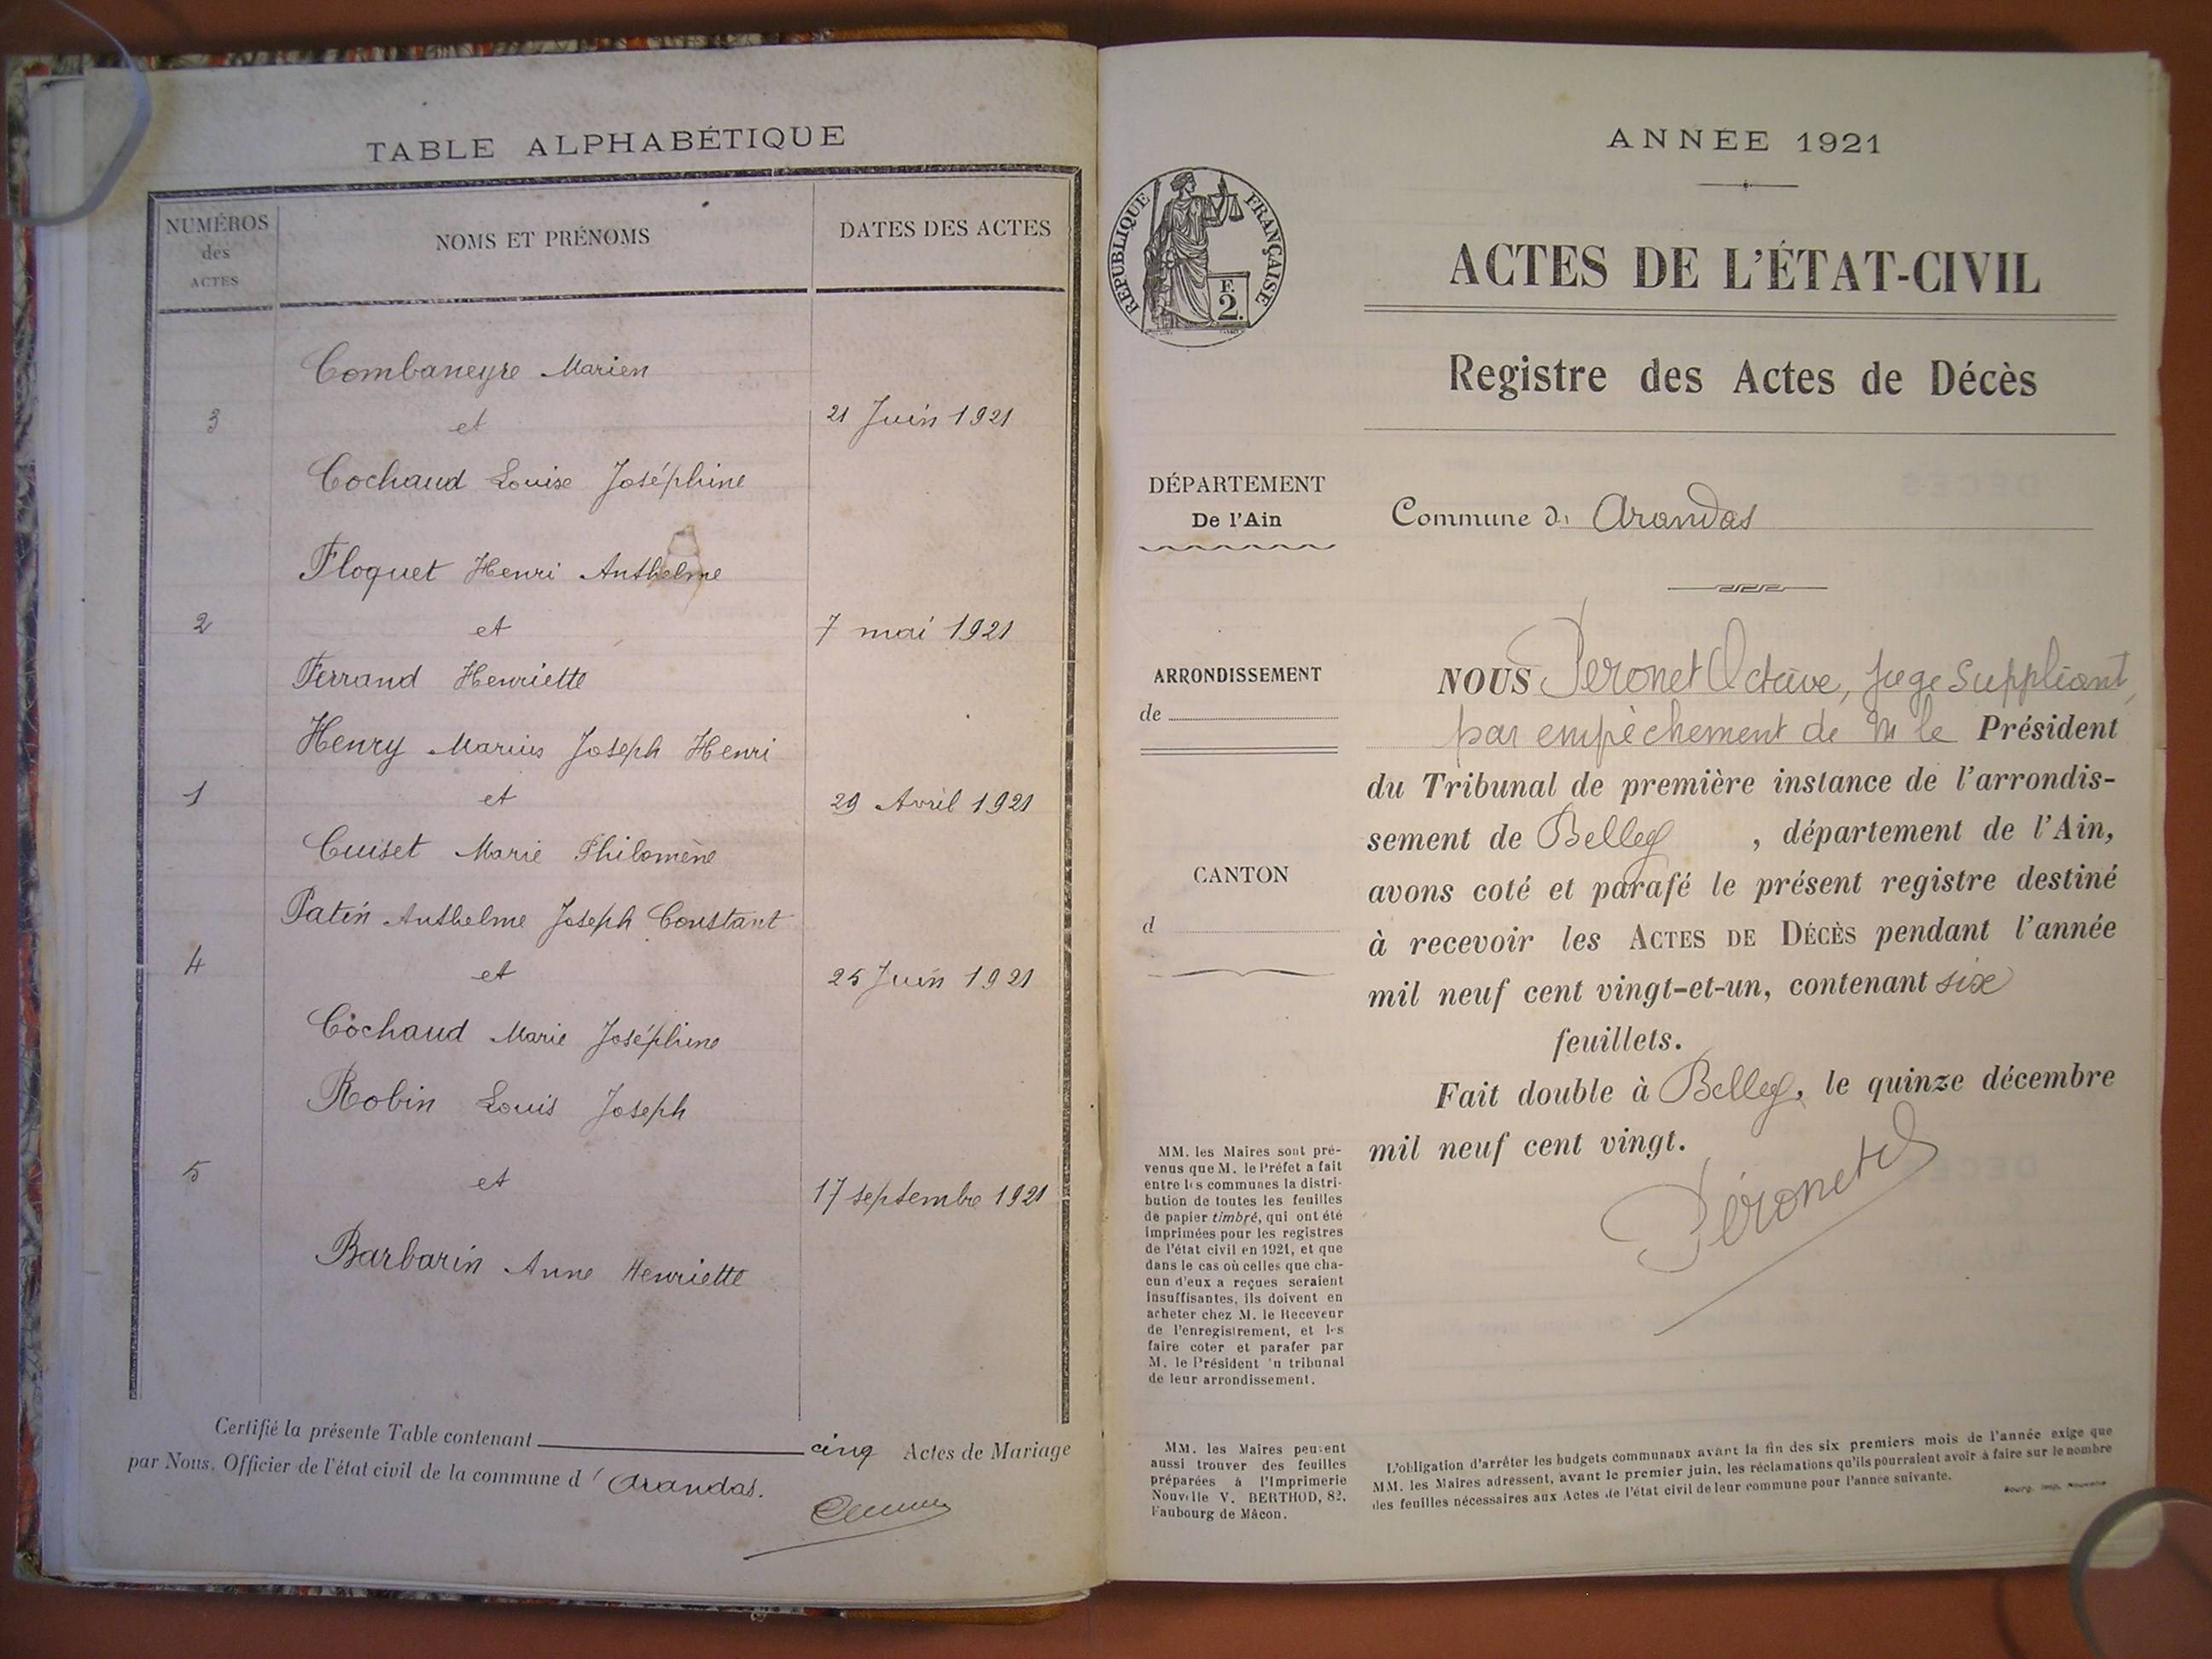 TABLE ALPHABÉTIQUE
NUMÉROS
des
ACTES
NOMS ET PRÉNOMS
DATES DES ACTES
Combaneyre Marien
3 et 21 Juin 1921
Cochaud Louise Joséphine
Floquet Henri Anthelme
2 et 7 mai 1921
Ferrand Henriette
Henry Marius Joseph Henri
1 et 29 Avril 1921
Cuiset Marie Philomène
Patin Anthelme Joseph Constant
4 et 25 Juin 1921
Cochaud Marie Joséphine
Robin Louis Joseph
5 et 17 septembre 1921
Barbarin Anne Henriette
Certifié la présente Table contenant cinq Actes de Mariage
par Nous, Officier de l'état civil de la commune d'Arandas.
ANNÉE 1921
RÉPUBLIQUE FRANÇAISE
F.
2.
ACTES DE L'ÉTAT-CIVIL
Registre des Actes de Décès
DÉPARTEMENT
De l'Ain
Commune d Arandas
ARRONDISSEMENT
de
CANTON
d
NOUS Peronet Octave, juge suppléant,
par empêchement de M le Président
du Tribunal de première instance de l'arrondis-
sement de Belley, département de l'Ain,
avons coté et parafé le présent registre destiné
à recevoir les ACTES DE DÉCÈS pendant l'année
mil neuf cent vingt-et-un, contenant six
feuillets.
Fait double à Belley, le quinze décembre
mil neuf cent vingt.
Péronet
MM. les Maires sont pré-
venus que M. le Préfet a fait
entre les communes la distri-
bution de toutes les feuilles
de papier timbré, qui ont été
imprimées pour les registres
de l'état civil en 1921, et que
dans le cas où celles que cha-
cun d'eux a reçues seraient
insuffisantes, ils doivent en
acheter chez M. le Receveur
de l'enregistrement, et les
faire coter et parafer par
M. le Président 'u tribunal
de leur arrondissement.
MM. les Maires peuvent
aussi trouver des feuilles
préparées à l'Imprimerie
Nouvelle V. BERTHOD, 82,
Faubourg de Mâcon.
L'obligation d'arrêter les budgets communaux avant la fin des six premiers mois de l'année exige que
MM. les Maires adressent, avant le premier juin, les réclamations qu'ils pourraient avoir à faire sur le nombre
des feuilles nécessaires aux Actes de l'état civil de leur commune pour l'année suivante.
Bourg, Imp. Nouvelle